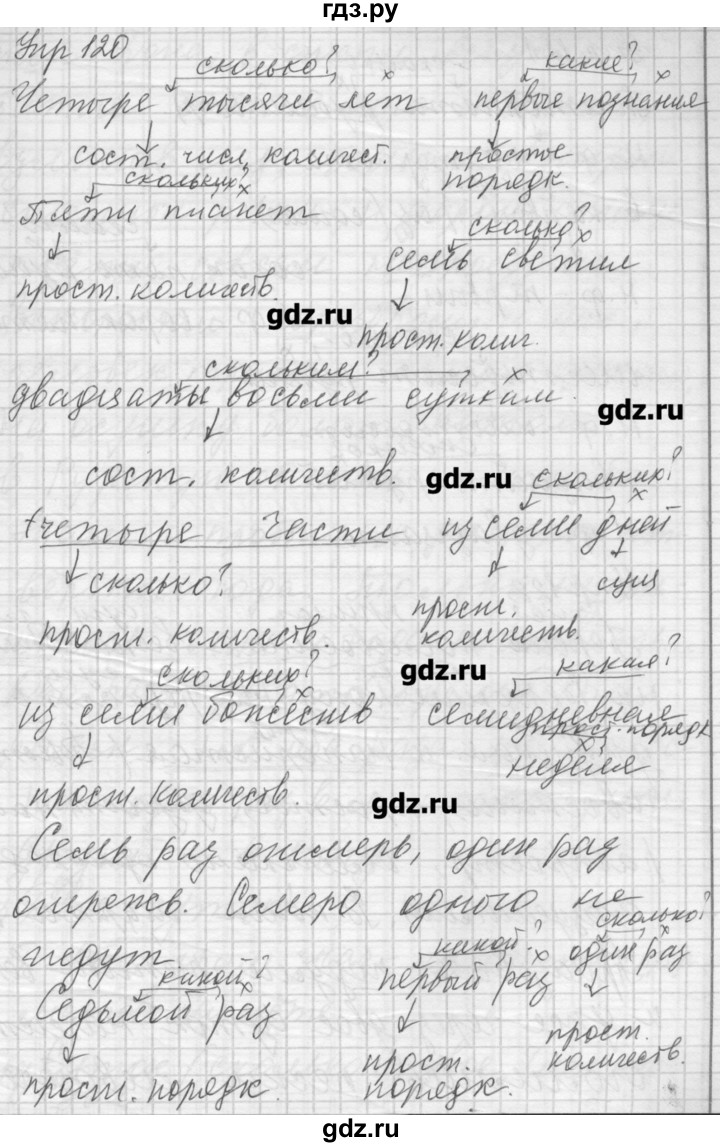 гдз.ру
Упр 120
сколько? какие?
х х
Четыре тысячи лет первые познания
сост. числ. количест. простое
порядк.
скольких?
х
Пяти планет
сколько?
х
семь светил
прост. количеств.
gdz.ru
прост. колич.
скольким?
х
двадцаты восьми суткам.
gdz.ru
сост. количеств.
gdz.ru
скольких?
х
четыре части из семи дней
сколько? сущ
прост. количеств. прост.
количеств.
скольких? какая?
gdz.ru
х
из семи божеств семидневная
прост. порядк
х
неделя
прост. количеств.
gdz.ru
Семь раз отмерь, один раз
отрежь. Семеро одного не
ждут
сколько?
х
какой? какой? один раз
х х
Седьмой раз первый раз
прост.
количеств.
прост. порядк. прост.
порядк.
gdz.ru